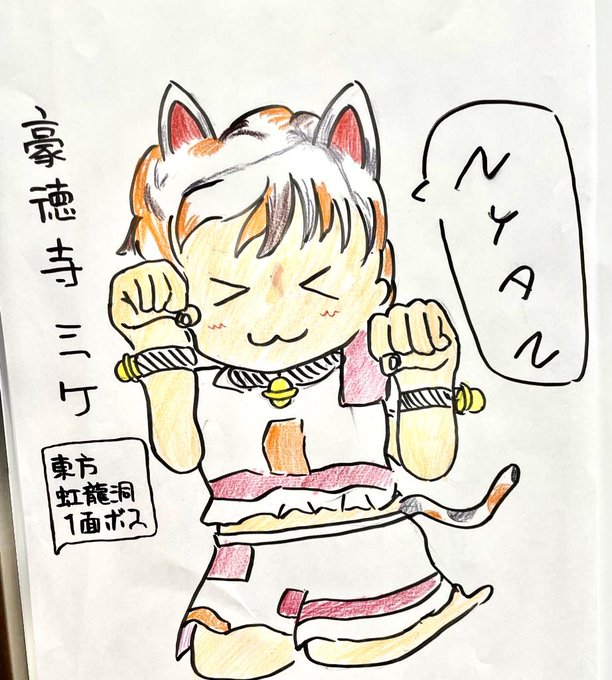 豪徳寺ミケ
NYAN
東方
虹龍洞
1面ボス